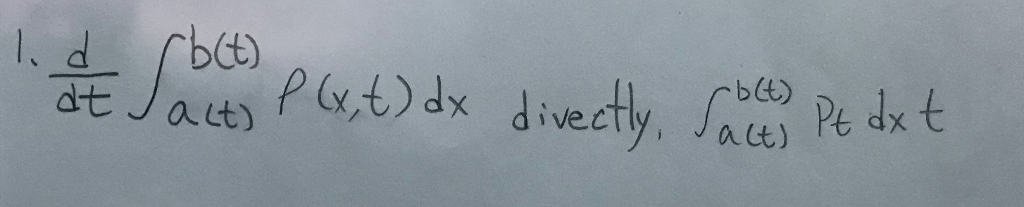 1. d/dt ∫_{a(t)}^{b(t)} P(x,t) dx divectly, ∫_{a(t)}^{b(t)} Pt dx t